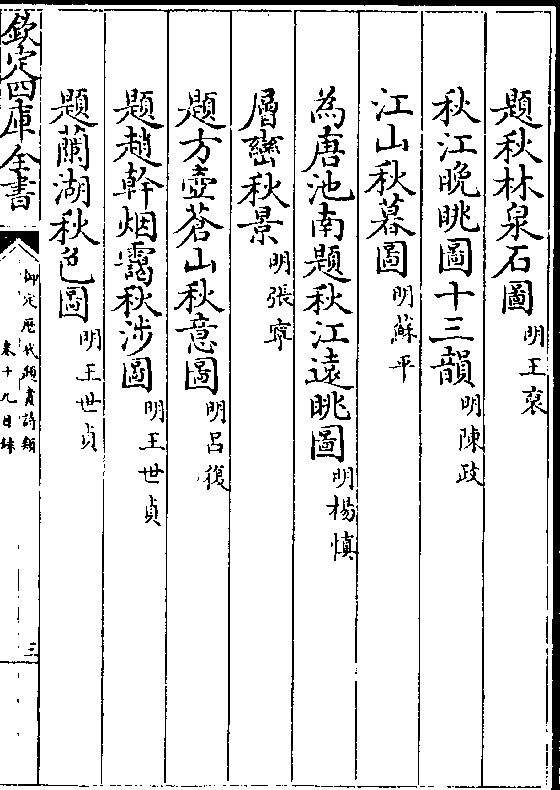 題秋林泉石圖 明王褒
秋江晚眺圖十三韻 明陳政
江山秋暮圖 明蘇平
為唐池南題秋江遠眺圖 明楊慎
層巒秋景 明張寧
題方壺蒼山秋意圖 明呂復
題趙幹烟靄秋涉圖 明王世貞
題蘭湖秋色圖 明王世貞
欽定四庫全書
御定歷代題畫詩類
卷十九目錄
三